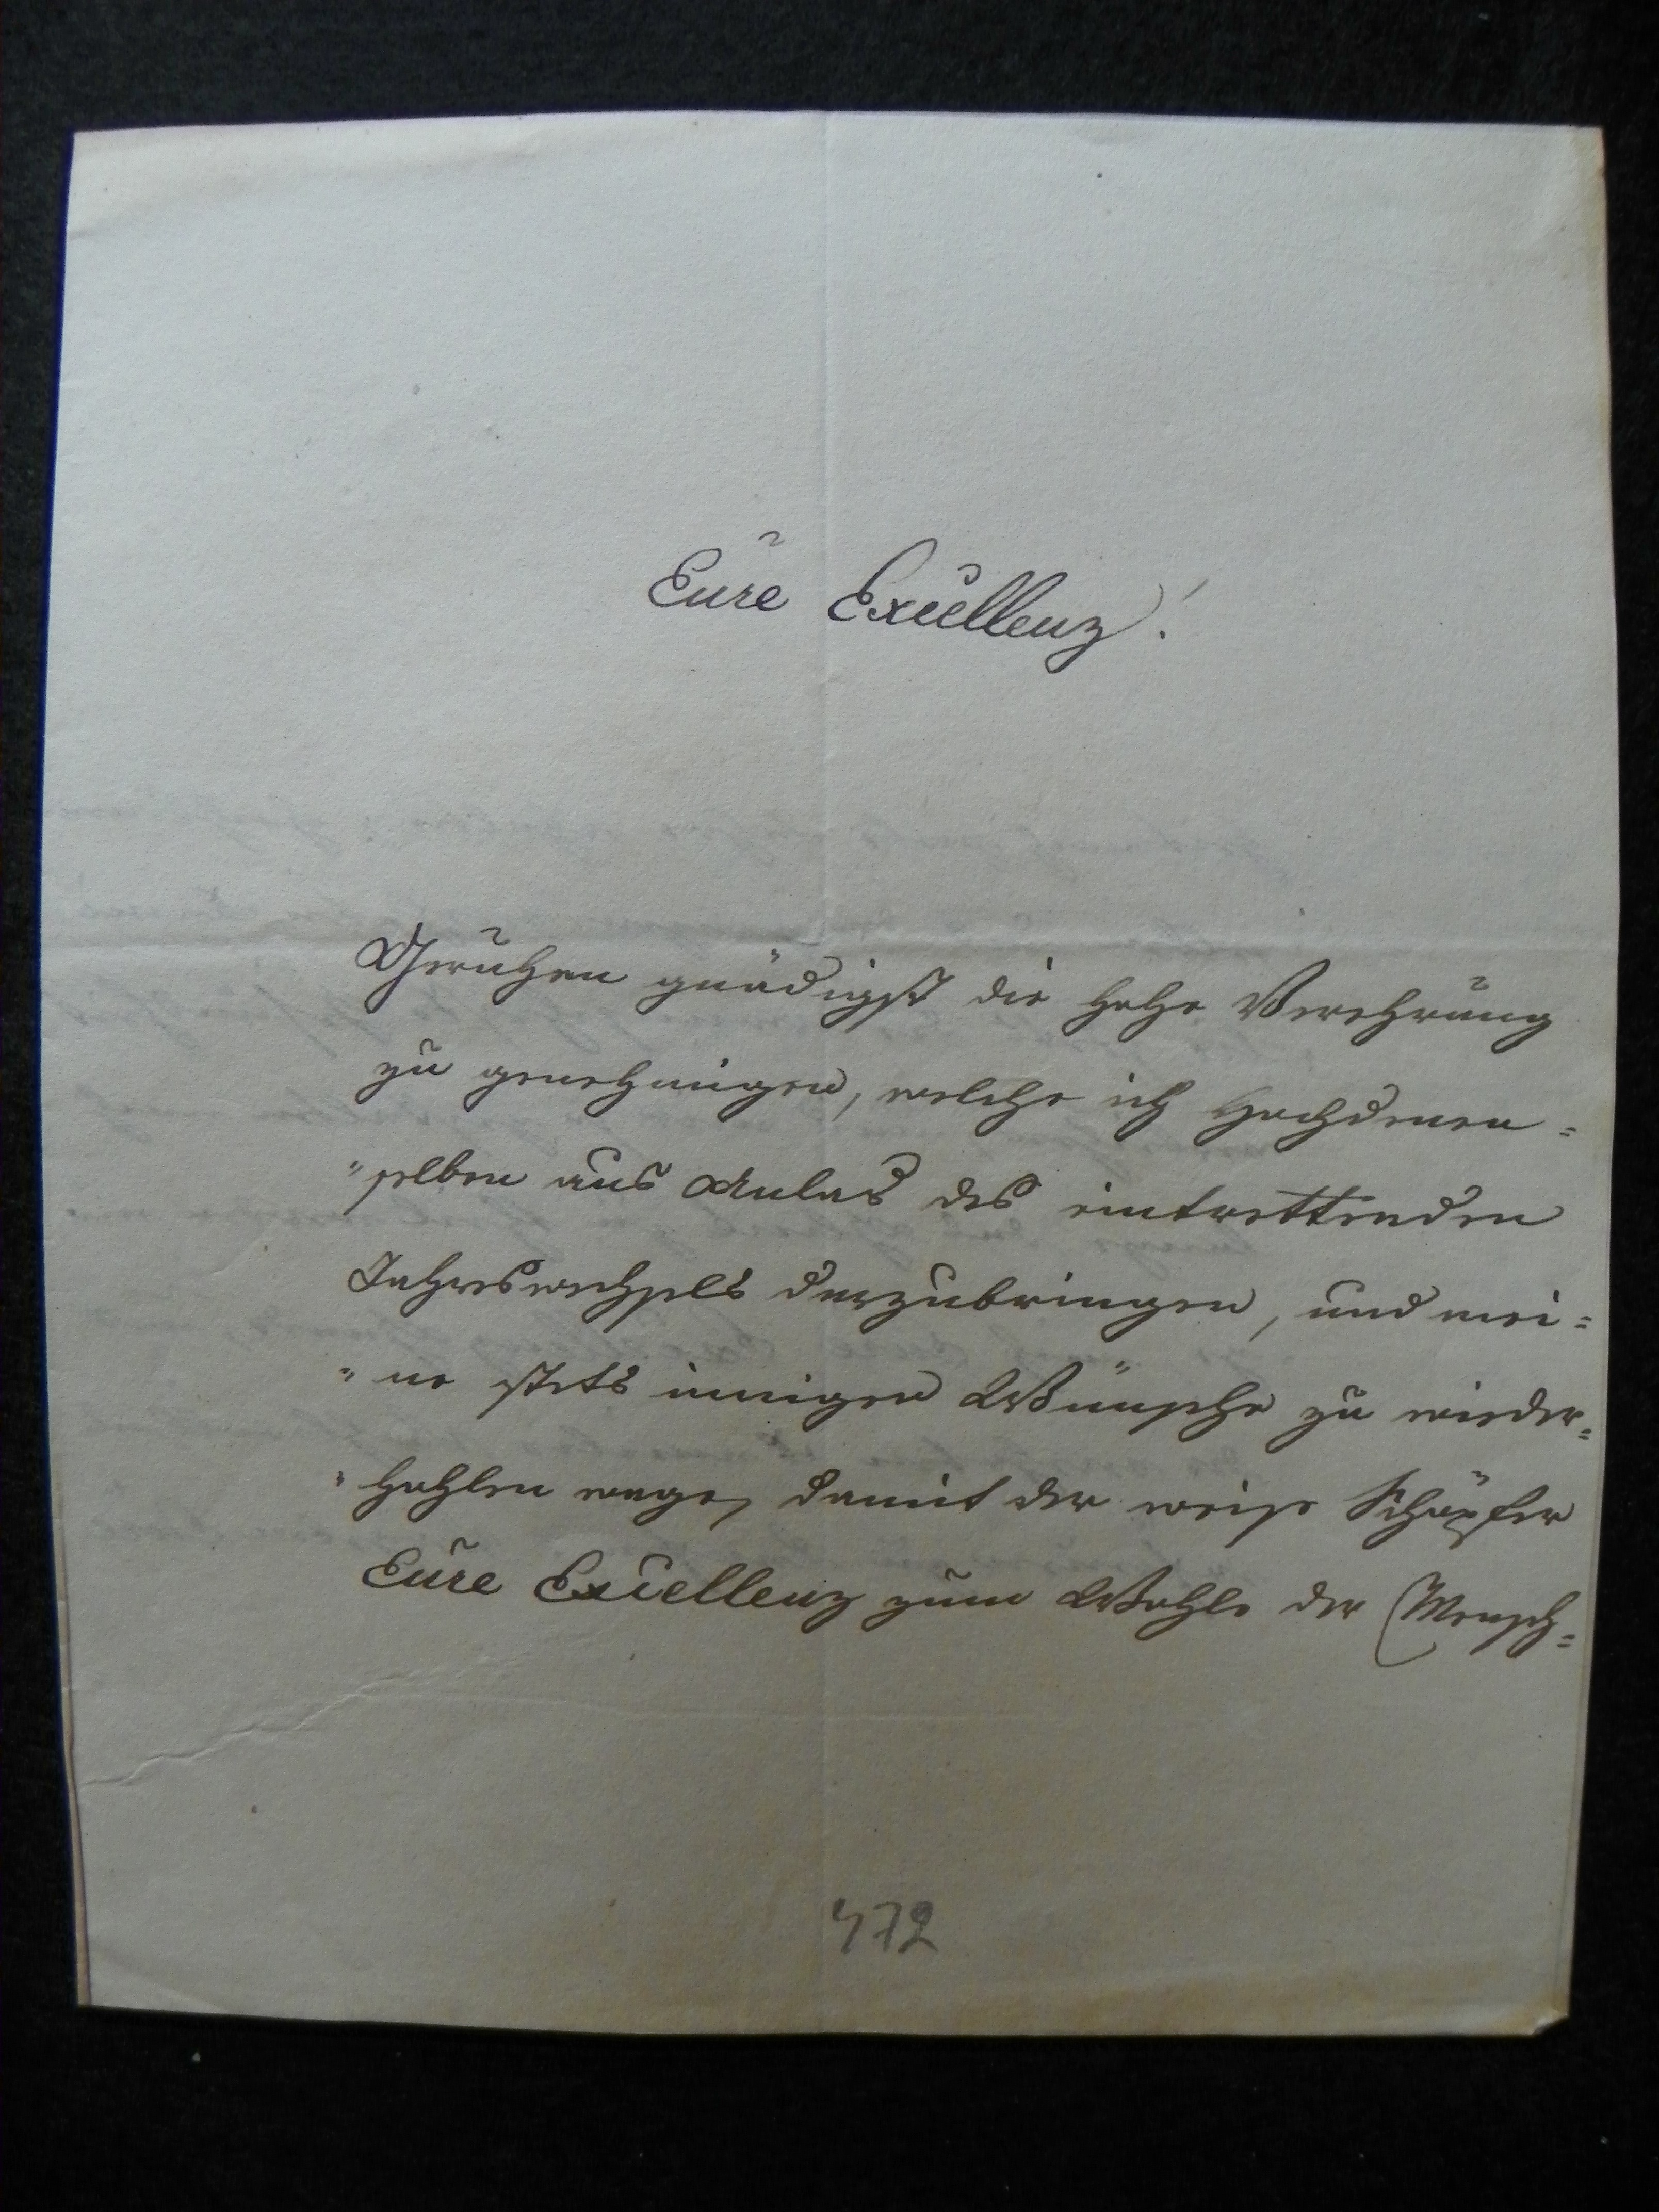 Eure Excellenz!
Geruhen gnädigst die hohe Verehrung
zu genehmigen, welche ich Hochdenen=
"selben aus Anlas des eintrettenden
Jahreswechsels darzubringen, und mei=
"ne stets innigen Wünsche zu wieder=
"hohlen wage, damit der weise Schöpfer
Eure Excellenz zum Wohle der Mensch=
472